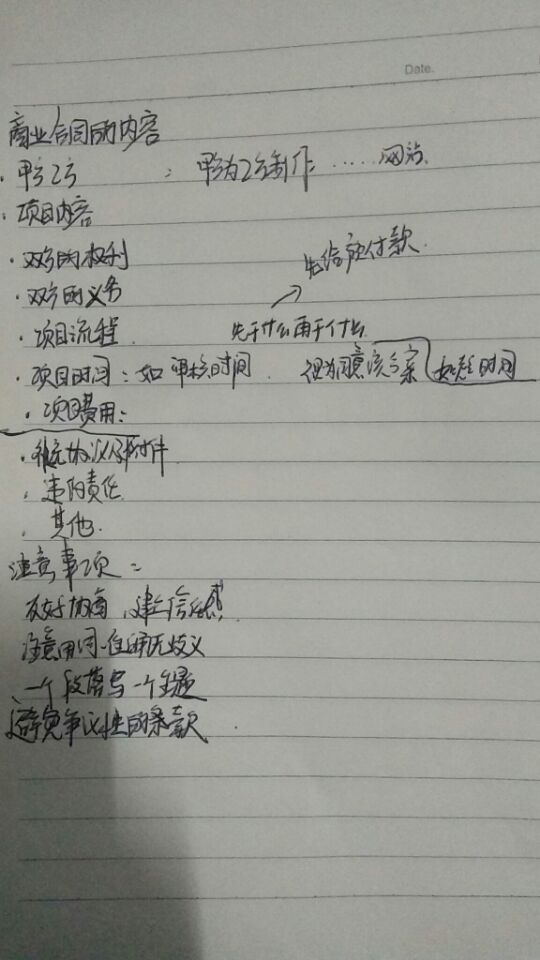 Date.
商业合同的内容
· 甲方乙方 : 甲方为乙方制作 ...... 网站.
· 项目内容
· 双方的权利
先给预付款.
· 双方的义务
· 项目流程. 先干什么再干什么
· 项目时间: 如 审核时间. 视为同意该方案 时间
· 项目费用:
· 补充协议及附件
· 违约责任.
· 其他.
注意事项:
友好协商、建立信任感!
注意用词 准确无歧义
一个段落写一个主题
避免争议性的条款